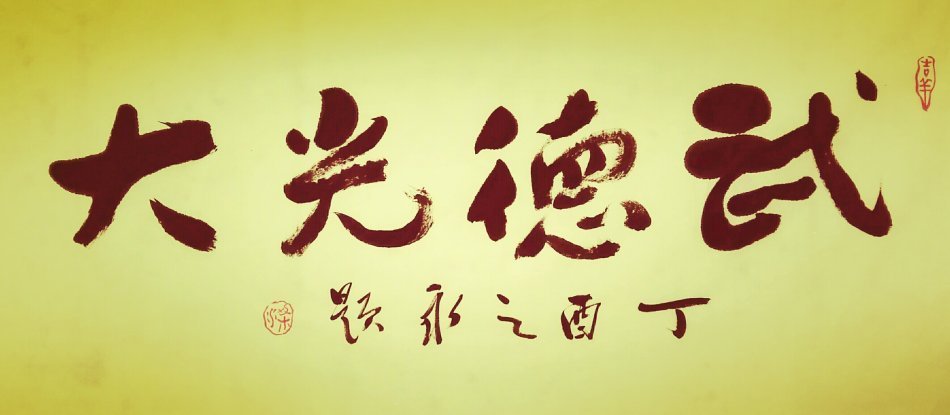 吉羊
武德光大
丁酉之秋题